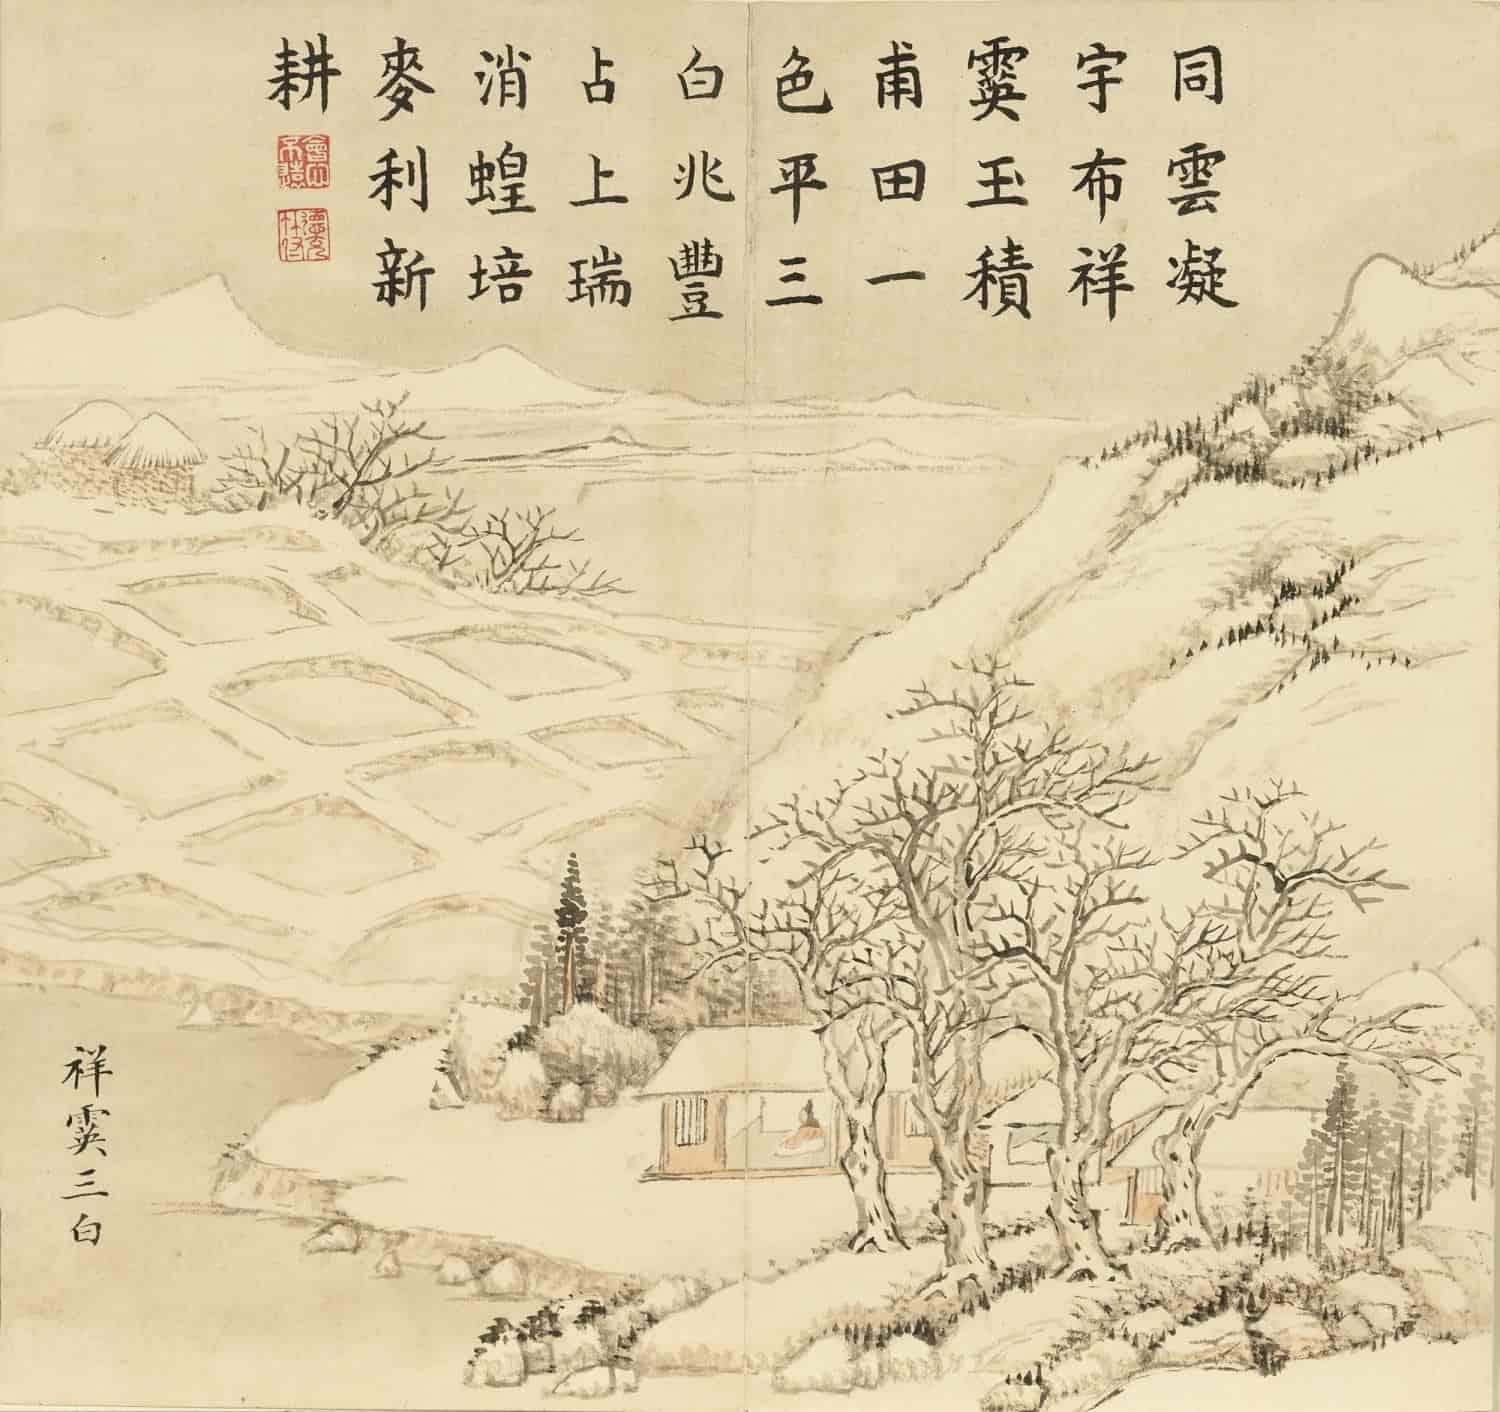 同雲凝
宇布祥
霙玉積
甫田一
色平三
白兆豐
占上瑞
消蝗培
麥利新
耕
會心不遠
德充符
祥霙三白